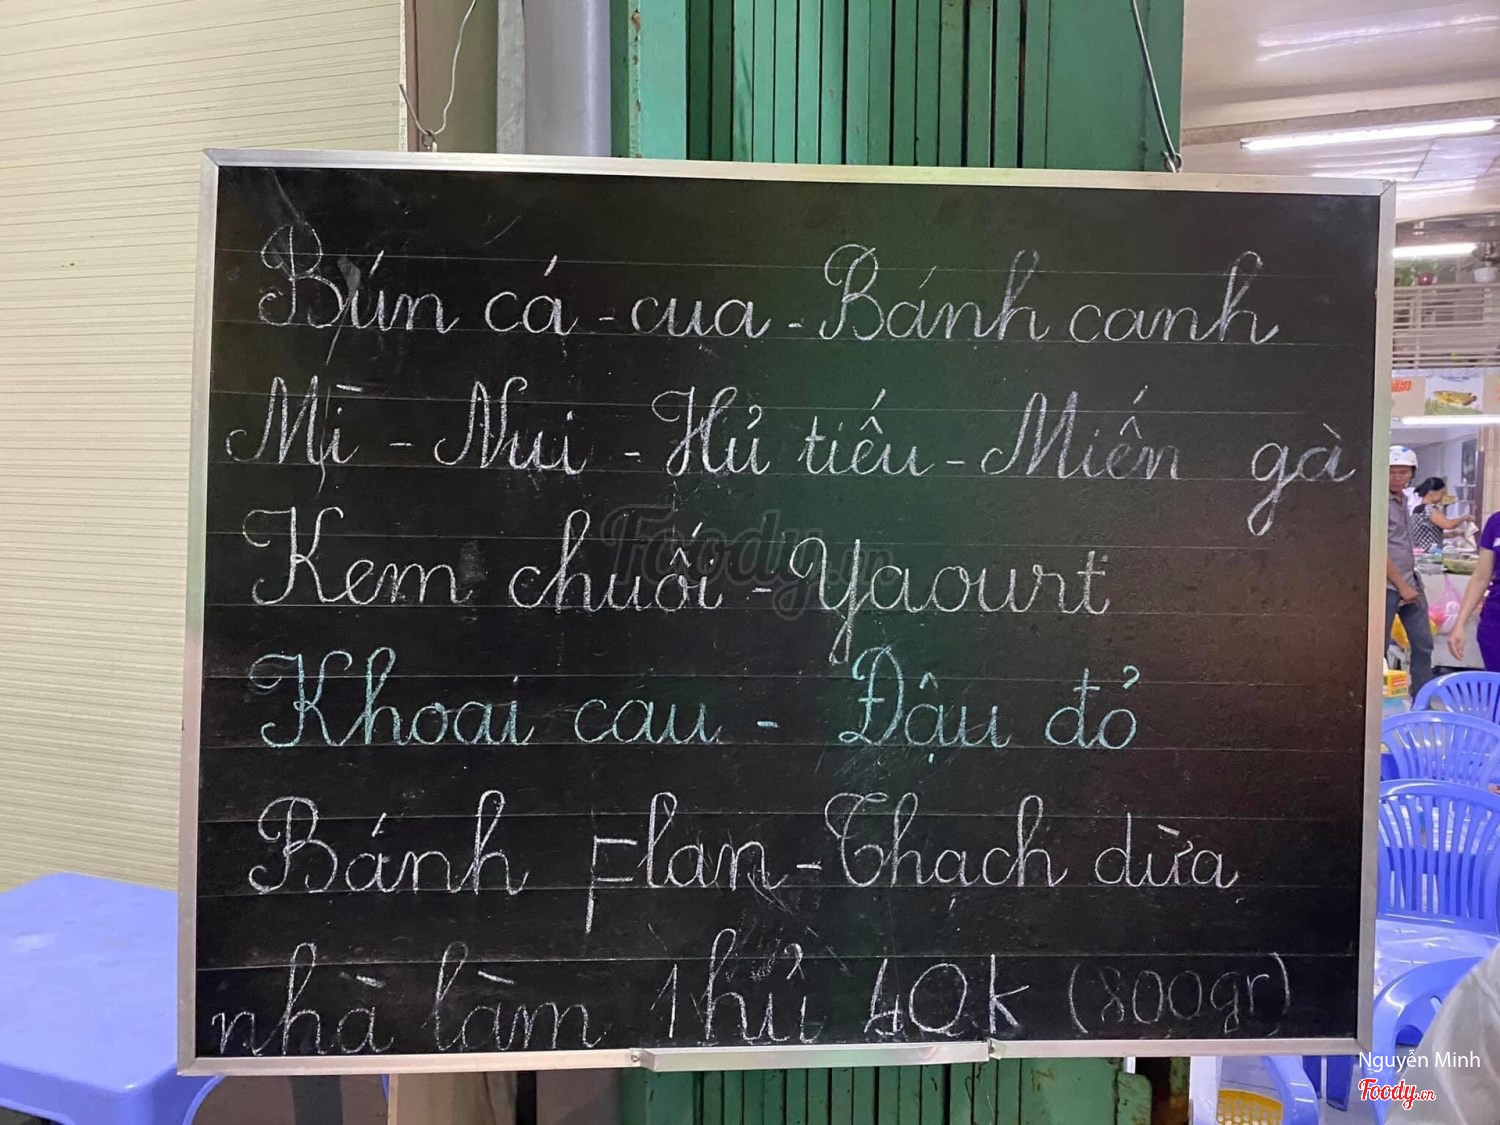 Bún cá - cua - Bánh canh
Mì - Nui - Hủ tiếu - Miến gà
Kem chuối - Yaourt
Khoai cau - Đậu đỏ
Bánh Flan - Thạch dừa
nhà làm 1 hủ 40k (800gr)
Foody.vn
Nguyễn Minh
Foody.cn